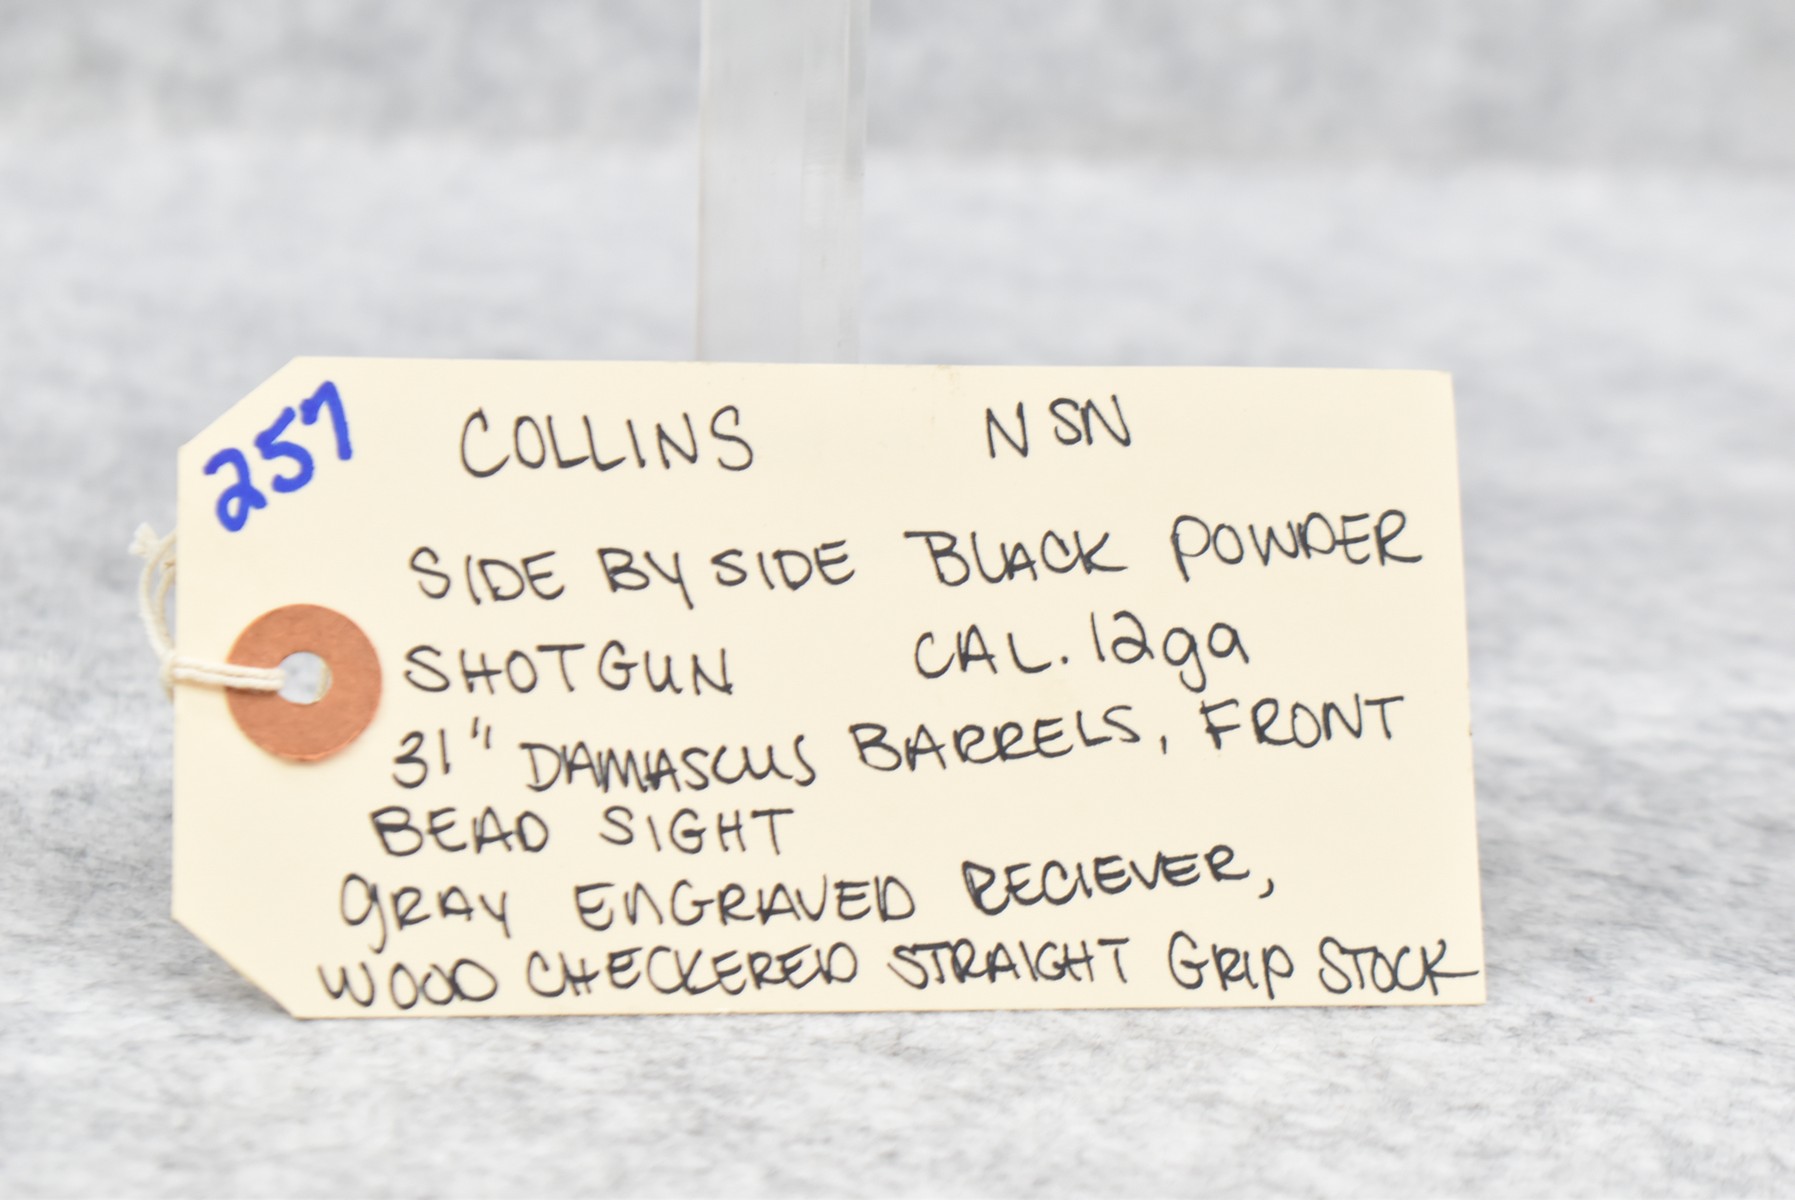 257
COLLINS NSN
SIDE BY SIDE BLACK POWDER
SHOTGUN CAL. 12ga
31" DAMASCUS BARRELS, FRONT
BEAD SIGHT
GRAY ENGRAVED RECIEVER,
WOOD CHECKERED STRAIGHT GRIP STOCK